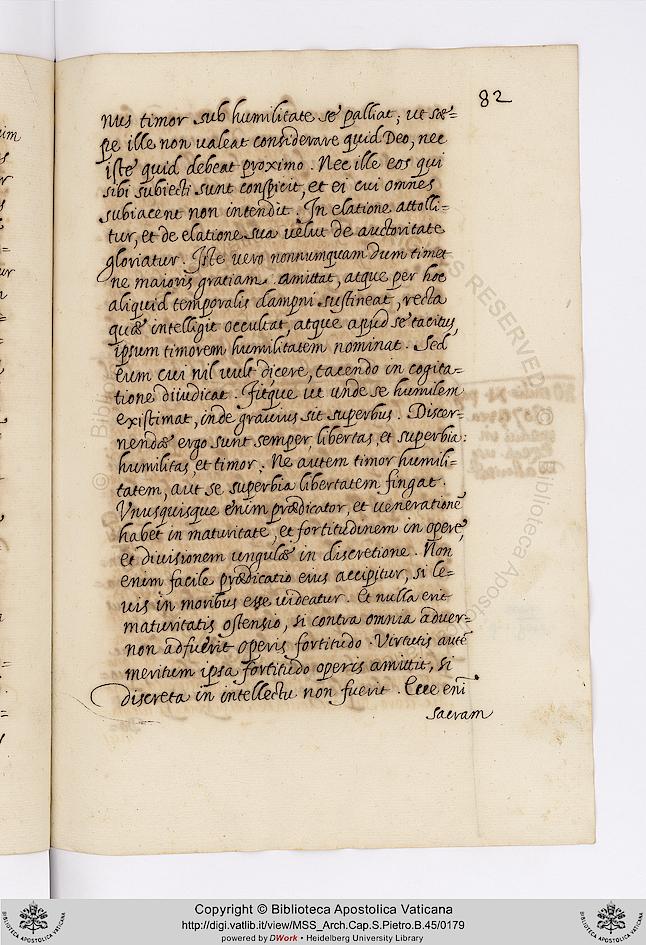 82
nus timor sub humilitate se palliat; ut sæ=
pe ille non valeat considerare quid Deo, nec
iste quid debeat proximo. Nec ille eos qui
sibi subiecti sunt conspicit, et ei cui omnes
subiacent non intendit. In elatione attolli=
tur, et de elatione sua velut de auctoritate
gloriatur. Iste vero nonnumquam dum timet
ne maioris gratiam amittat, atque per hoc
aliquid temporalis dampni sustineat, recta
quæ intelligit occultat, atque apud se tacitus
ipsum timorem humilitatem nominat. Sed
eum cui nil vult dicere, tacendo in cogita=
tione diiudicat. Fitque ut unde se humilem
existimat, inde gravius sit superbus. Discer=
nendæ ergo sunt semper, libertas, et superbia:
humilitas, et timor. Ne autem timor humili=
tatem, aut se superbia libertatem fingat.
Vnusquisque enim prædicator, et venerationē
habet in maturitate, et fortitudinem in opere,
et divisionem ungulæ in discretione. Non
enim facile prædicatio eius accipitur, si le=
vis in moribus esse videatur. Et nulla erit
maturitatis ostensio, si contra omnia adver=
non adfuerit operis fortitudo. Virtutis autē
meritum ipsa fortitudo operis amittit, si
discreta in intellectu non fuerit. Ecce eni̅
sacram
Copyright © Biblioteca Apostolica Vaticana
http://digi.vatlib.it/view/MSS_Arch.Cap.S.Pietro.B.45/0179
powered by DWork • Heidelberg University Library